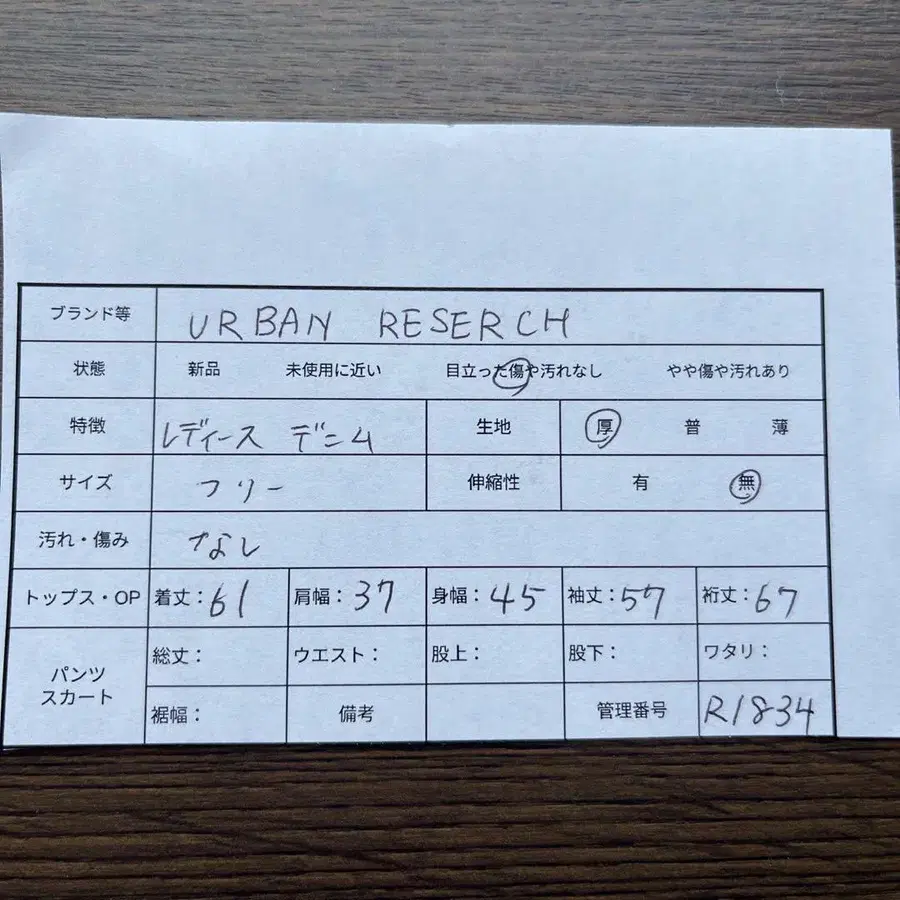 ブランド等 URBAN RESERCH
状態 新品 未使用に近い 目立った傷や汚れなし やや傷や汚れあり
特徴 レディース デニム 生地 厚 普 薄
サイズ フリー 伸縮性 有 無
汚れ・傷み なし
トップス・OP 着丈:61 肩幅:37 身幅:45 袖丈:57 裄丈:67
パンツ スカート 総丈: ウエスト: 股上: 股下: ワタリ:
裾幅: 備考 管理番号 R1834